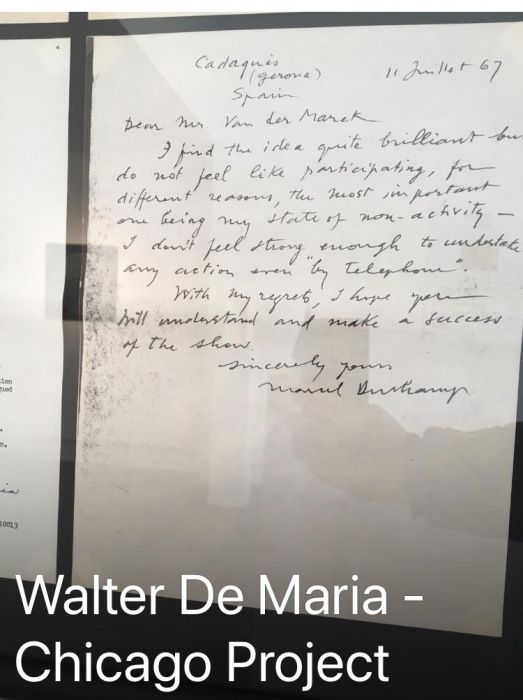 Cadaquès
(Gerona)
Spain
11 Juillet 67
Dear Mr. Van der Marck
I find the idea quite brilliant bu
do not feel like participating, for
different reasons, the most important
one being my state of non-activity —
I don't feel strong enough to undertake
any action even "by telephone".
With my regrets, I hope you
will understand and make a success
of the show.
Sincerely yours
Marcel Duchamp
ion
ued
n.
ia
10013
Walter De Maria -
Chicago Project